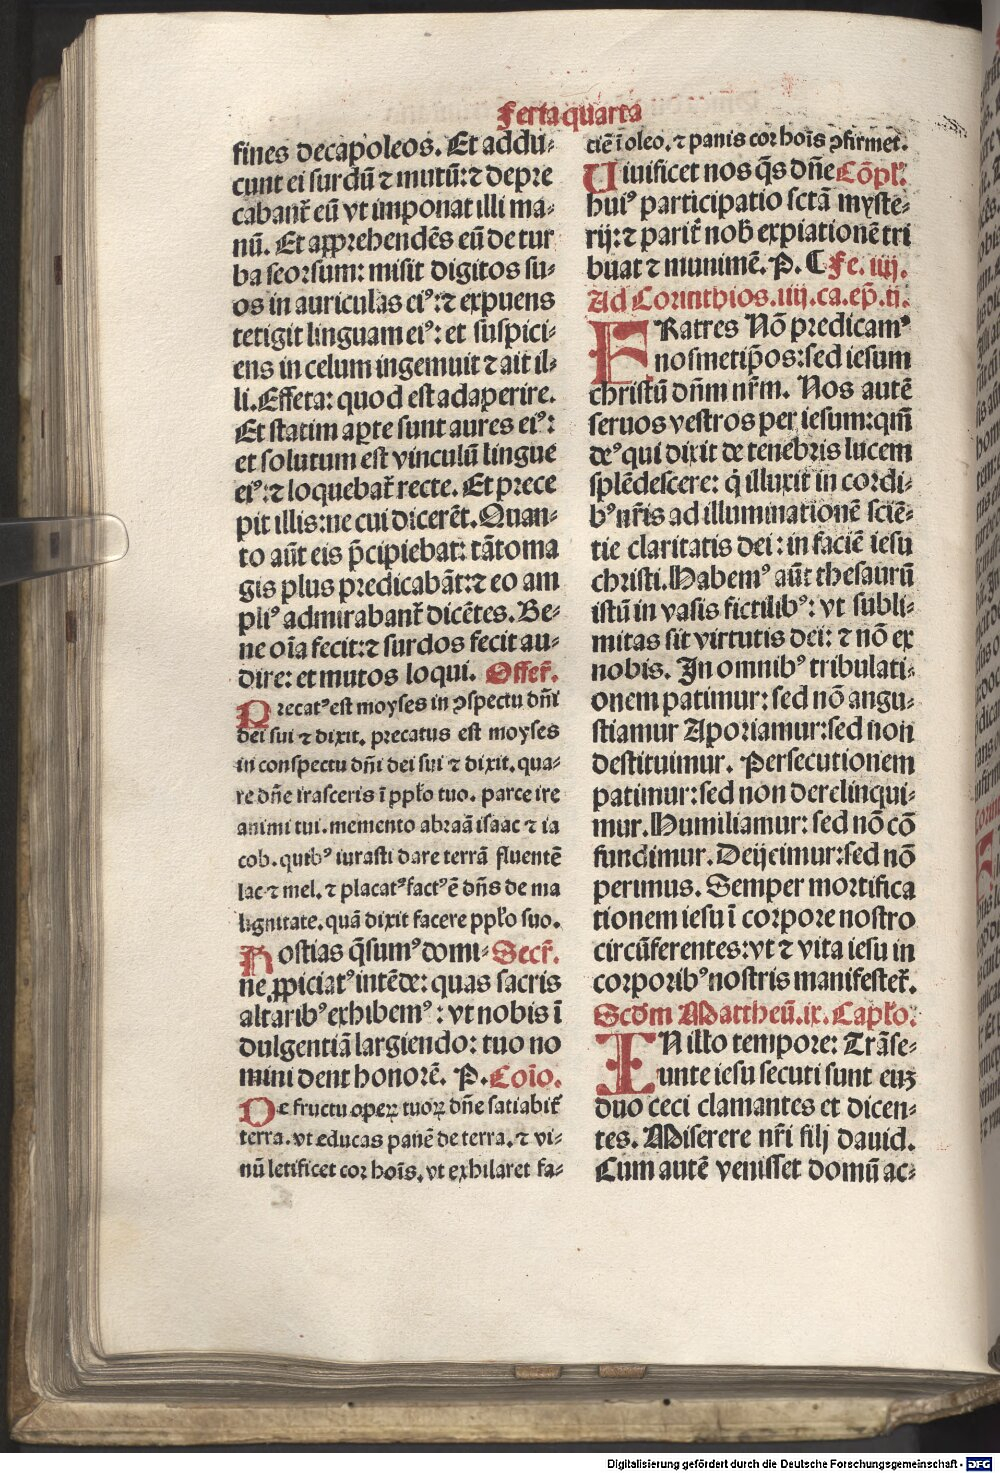 Feria quarta
fines decapoleos. Et addu⸗
cunt ei surdū ⁊ mutū: ⁊ depre
cabant̃ eū vt imponat illi ma⸗
nū. Et apprehendēs eū de tur
ba seorsum: misit digitos su⸗
os in auriculas eiꝰ: ⁊ expuens
tetigit linguam eiꝰ: et suspici⸗
ens in celum ingemuit ⁊ ait il⸗
li. Effeta: quod est adaperire.
Et statim aꝑte sunt aures eiꝰ:
et solutum est vinculū lingue
eiꝰ: ⁊ loquebat̃ recte. Et prece
pit illis: ne cui dicerēt. Quan⸗
to aūt eis p̄cipiebat: tāto ma
gis plus predicabāt: ⁊ eo am
pliꝰ admirabant̃ dicētes. Be⸗
ne oīa fecit: ⁊ surdos fecit au⸗
dire: et mutos loqui. Offer̃.
Precatꝰ est moyses in ꝯspectu dñi
dei sui ⁊ dixit. precatus est moyses
in conspectu dñi dei sui ⁊ dixit. qua⸗
re dñe irasceris ī pplo tuo. parce ire
animi tui. memento abraā isaac ⁊ ia
cob. quibꝰ iurasti dare terrā fluentē
lac ⁊ mel. ⁊ placatꝰ factꝰ ē dñs de ma
lignitate. quā dixit facere pplo suo.
Hostias q̄sumꝰ domi⸗ Secr̃.
ne ꝓpiciatꝰ intēde: quas sacris
altaribꝰ exhibemꝰ: vt nobis ī
dulgentiā largiendo: tuo no
mini dent honorē. P. Coīo.
De fructu operꝝ tuoꝝ dñe satiabit̃
terra. vt educas panē de terra. ⁊ vi⸗
nū letificet cor hoīs. vt exhilaret fa⸗
ciē ī oleo. ⁊ panis cor hoīs ꝯfirmet.
Uiuificet nos q̄s dñe Cōpl̃.
huiꝰ participatio sctā myste⸗
rij: ⁊ parit̃ nob̄ expiationē tri
buat ⁊ munimē. P. C Fe. iiij.
Ad Corinthios. iiij. ca. ep̄. ij.
FRatres Nō predicamꝰ
nosmetip̄os: sed iesum
christū dñm nr̃m. Nos autē
seruos vestros per iesum: qm̄
deꝰ qui dixit de tenebris lucem
splēdescere: q̇ illuxit in cordi⸗
bꝰ nr̃is ad illuminationē sciē⸗
tie claritatis dei: in faciē iesu
christi. Habemꝰ aūt thesaurū
istū in vasis fictilibꝰ: vt subli⸗
mitas sit virtutis dei: ⁊ nō ex
nobis. In omnibꝰ tribulati⸗
onem patimur: sed nō angu⸗
stiamur Aporiamur: sed non
destituimur. Persecutionem
patimur: sed non derelinqui⸗
mur. Humiliamur: sed nō cō
fundimur. Deijcimur: sed nō
perimus. Semper mortifica
tionem iesu ī corpore nostro
circūferentes: vt ⁊ vita iesu in
corporibꝰ nostris manifestet̃.
Scdm Mattheū. ix. Caplo.
IN illo tempore: Trāse⸗
unte iesu secuti sunt euꝫ
duo ceci clamantes et dicen⸗
tes. Miserere nr̃i fili dauid.
Cum autē venisset domū ac⸗
Digitalisierung gefördert durch die Deutsche Forschungsgemeinschaft - DFG